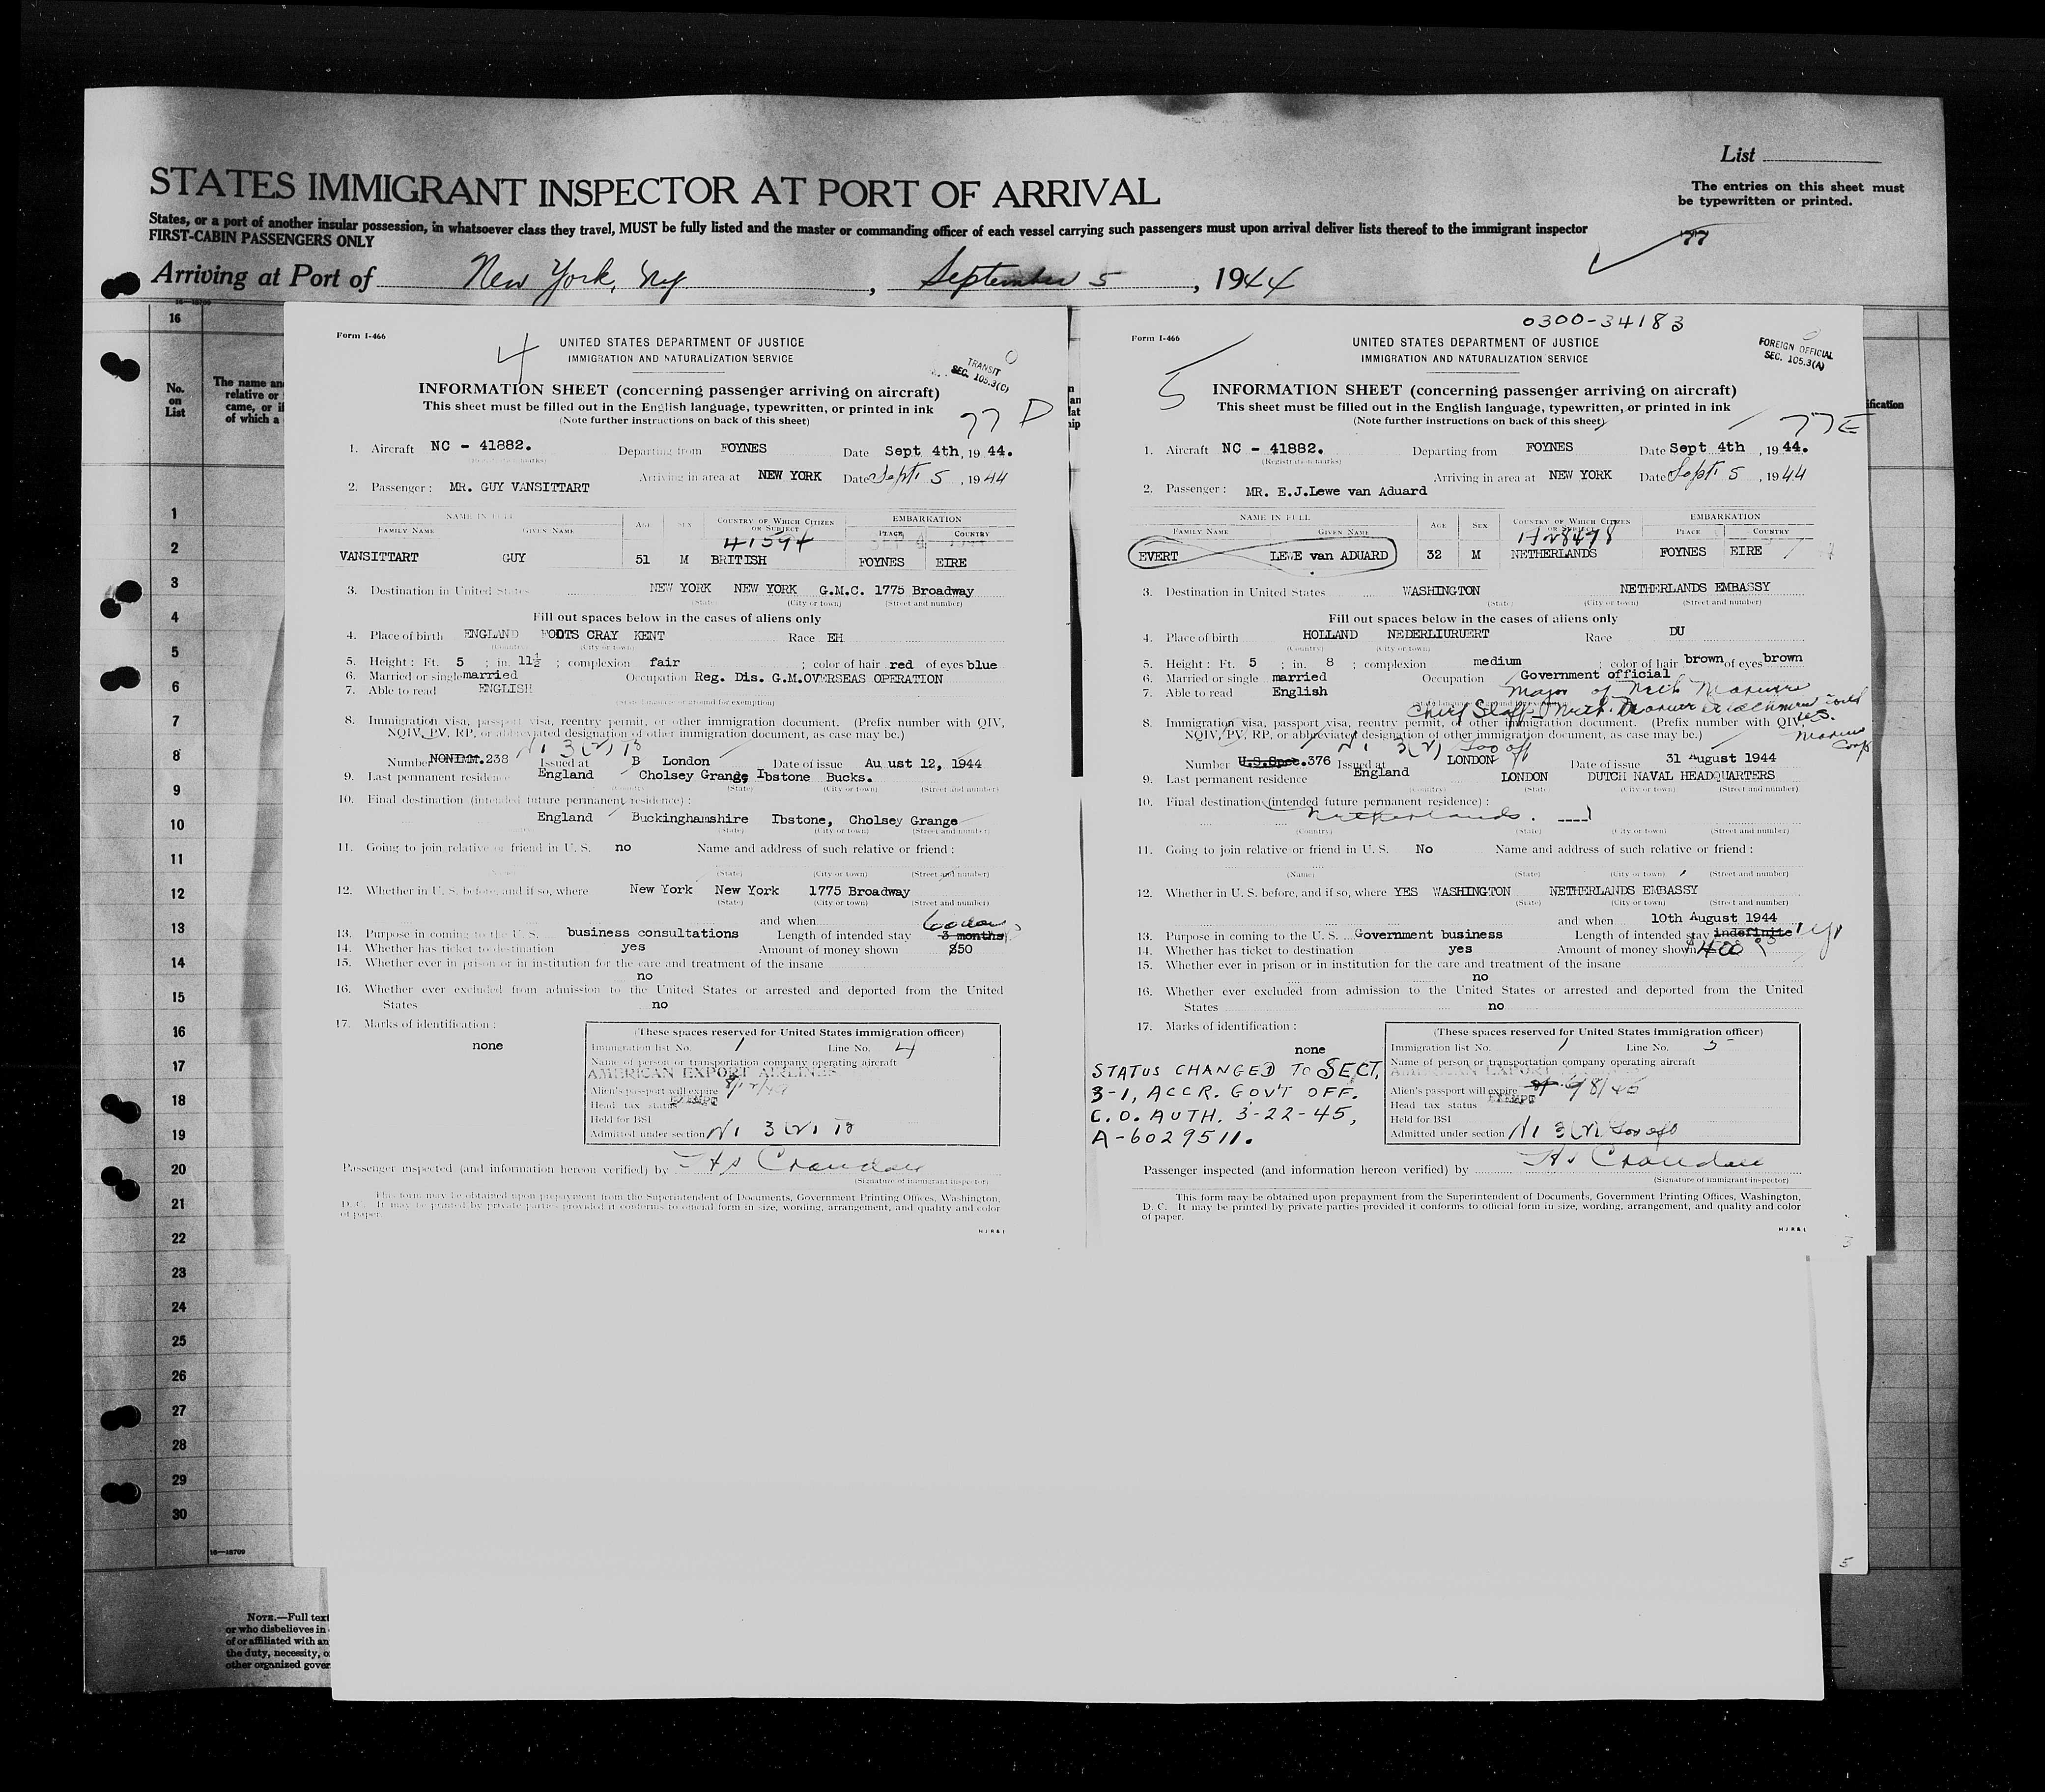 List
STATES IMMIGRANT INSPECTOR AT PORT OF ARRIVAL
The entries on this sheet must
be typewritten or printed.
States, or a port of another insular possession, in whatsoever class they travel, MUST be fully listed and the master or commanding officer of each vessel carrying such passengers must upon arrival deliver lists thereof to the immigrant inspector
FIRST-CABIN PASSENGERS ONLY
77
Arriving at Port of New York, Ny, September 5, 1944
16—18709
16
No.
on
List
The name an
relative or
came, or i
of which a
1
2
3
4
5
6
7
8
9
10
11
12
13
14
15
16
17
18
19
20
21
22
23
24
25
26
27
28
29
30
16—18709
NOTE.—Full text
or who disbelieves in
of or affiliated with an
the duty, necessity, o
other organized gover
Form I-466
4
UNITED STATES DEPARTMENT OF JUSTICE
IMMIGRATION AND NATURALIZATION SERVICE
TRANSIT
SEC. 105.3(C)
INFORMATION SHEET (concerning passenger arriving on aircraft)
This sheet must be filled out in the English language, typewritten, or printed in ink
(Note further instructions on back of this sheet)
77 D
1. Aircraft NC - 41882. Departing from FOYNES Date Sept 4th, 1944.
(Registration marks)
Arriving in area at NEW YORK Date Sept. 5, 1944
2. Passenger: MR. GUY VANSITTART
NAME IN FULL AGE SEX COUNTRY OF WHICH CITIZEN OR SUBJECT EMBARKATION
FAMILY NAME GIVEN NAME PLACE COUNTRY
41594
VANSITTART GUY 51 M BRITISH FOYNES EIRE
3. Destination in United States NEW YORK NEW YORK G.M.C. 1775 Broadway
(State) (City or town) (Street and number)
Fill out spaces below in the cases of aliens only
4. Place of birth ENGLAND FOOTS CRAY KENT Race EH
(Country) (City or town)
5. Height: Ft. 5 ; in. 11½ ; complexion fair ; color of hair red of eyes blue
6. Married or single married Occupation Reg. Dis. G.M.OVERSEAS OPERATION
7. Able to read ENGLISH
8. Immigration visa, passport visa, reentry permit, or other immigration document. (Prefix number with QIV,
NQIV, PV, RP, or abbreviated designation of other immigration document, as case may be.)
Number NONIMM.238 Issued at B London Date of issue Au ust 12, 1944
9. Last permanent residence England Cholsey Grange, Ibstone Bucks.
(Country) (State) (City or town) (Street and number)
10. Final destination (intended future permanent residence):
England Buckinghamshire Ibstone, Cholsey Grange
(State) (City or town) (Street and number)
11. Going to join relative or friend in U. S. no Name and address of such relative or friend:
(State) (City or town) (Street and number)
12. Whether in U. S. before, and if so, where New York New York 1775 Broadway
(State) (City or town) (Street and number)
and when
13. Purpose in coming to the U. S. business consultations Length of intended stay 3 months
14. Whether has ticket to destination yes Amount of money shown $50
15. Whether ever in prison or in institution for the care and treatment of the insane
no
16. Whether ever excluded from admission to the United States or arrested and deported from the United
States no
17. Marks of identification:
none
(These spaces reserved for United States immigration officer)
Immigration list No. 1 Line No. 4
Name of person or transportation company operating aircraft
AMERICAN EXPORT AIRLINES
Alien's passport will expire
Head tax status EXEMPT
Held for BSI
Admitted under section
Passenger inspected (and information hereon verified) by
(Signature of immigrant inspector)
This form may be obtained upon prepayment from the Superintendent of Documents, Government Printing Offices, Washington,
D. C. It may be printed by private parties provided it conforms to official form in size, wording, arrangement, and quality and color
of paper.
Form I-466
0300-34183
5
UNITED STATES DEPARTMENT OF JUSTICE
IMMIGRATION AND NATURALIZATION SERVICE
FOREIGN OFFICIAL
SEC. 105.3(A)
INFORMATION SHEET (concerning passenger arriving on aircraft)
This sheet must be filled out in the English language, typewritten, or printed in ink
(Note further instructions on back of this sheet)
77E
1. Aircraft NC - 41882. Departing from FOYNES Date Sept 4th, 1944.
(Registration marks)
Arriving in area at NEW YORK Date Sept. 5, 1944
2. Passenger: MR. E.J.Lewe van Aduard
NAME IN FULL AGE SEX COUNTRY OF WHICH CITIZEN OR SUBJECT EMBARKATION
FAMILY NAME GIVEN NAME PLACE COUNTRY
EVERT LEWE van ADUARD 32 M NETHERLANDS FOYNES EIRE
3. Destination in United States WASHINGTON NETHERLANDS EMBASSY
(State) (City or town) (Street and number)
Fill out spaces below in the cases of aliens only
4. Place of birth HOLLAND NEDERLIURUERT Race DU
(Country) (City or town)
5. Height: Ft. 5 ; in. 8 ; complexion medium ; color of hair brown of eyes brown
6. Married or single married Occupation Government official
7. Able to read English
Major of Neth Marines
8. Immigration visa, passport visa, reentry permit, or other immigration document. (Prefix number with QIV,
NQIV, PV, RP, or abbreviated designation of other immigration document, as case may be.)
Number U.S.Spec.376 Issued at LONDON Date of issue 31 August 1944
9. Last permanent residence England LONDON DUTCH NAVAL HEADQUARTERS
(Country) (State) (City or town) (Street and number)
10. Final destination (intended future permanent residence):
Netherlands.
(Country) (State) (City or town) (Street and number)
11. Going to join relative or friend in U. S. No Name and address of such relative or friend:
(Name) (State) (City or town) (Street and number)
12. Whether in U. S. before, and if so, where YES WASHINGTON NETHERLANDS EMBASSY
(State) (City or town) (Street and number)
and when 10th August 1944
13. Purpose in coming to the U. S. Government business Length of intended stay indefinite 1 yr
14. Whether has ticket to destination yes Amount of money shown $400
15. Whether ever in prison or in institution for the care and treatment of the insane
no
16. Whether ever excluded from admission to the United States or arrested and deported from the United
States no
17. Marks of identification:
none
STATUS CHANGED TO SECT.
3-1, ACCR. GOV'T OFF.
C.O. AUTH. 3-22-45,
A-6029511.
(These spaces reserved for United States immigration officer)
Immigration list No. 1 Line No. 5
Name of person or transportation company operating aircraft
AMERICAN EXPORT
Alien's passport will expire
Head tax status EXEMPT
Held for BSI
Admitted under section
Passenger inspected (and information hereon verified) by
(Signature of immigrant inspector)
This form may be obtained upon prepayment from the Superintendent of Documents, Government Printing Offices, Washington,
D. C. It may be printed by private parties provided it conforms to official form in size, wording, arrangement, and quality and color
of paper.
3
5